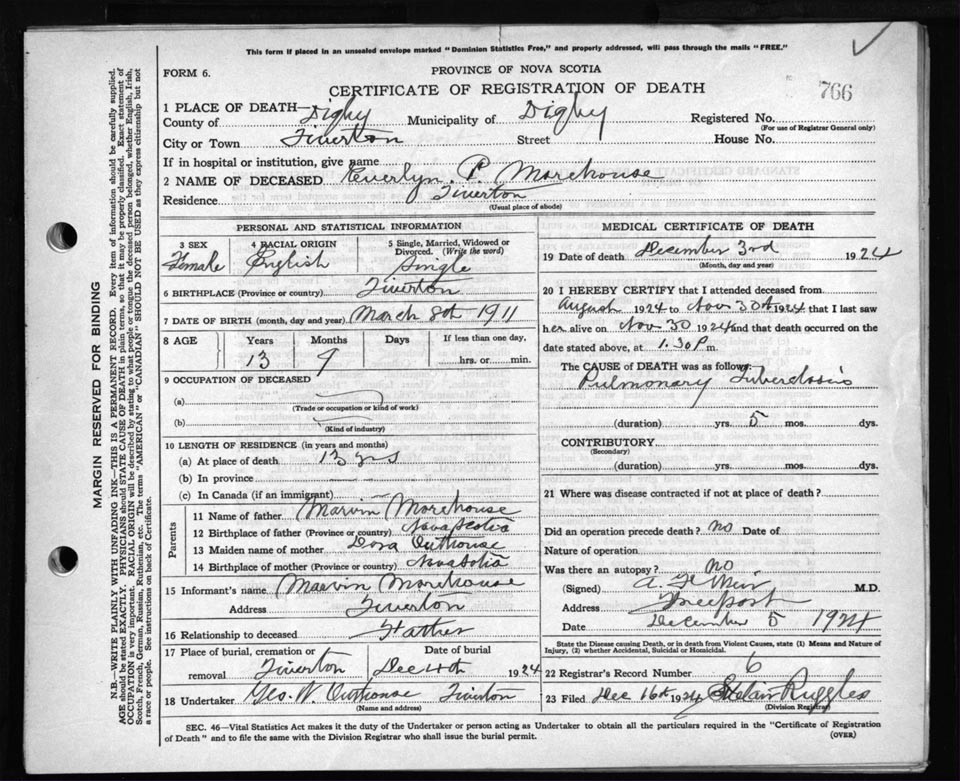 This form if placed in an unsealed envelope marked "Dominion Statistics Free," and properly addressed, will pass through the mails "FREE."
FORM 6.
PROVINCE OF NOVA SCOTIA
CERTIFICATE OF REGISTRATION OF DEATH
766
1 PLACE OF DEATH—
County of Digby Municipality of Digby Registered No.
(For use of Registrar General only)
City or Town Tiverton Street House No.
If in hospital or institution, give name
2 NAME OF DECEASED Everlyn. P. Morehouse
Residence Tiverton
(Usual place of abode)
PERSONAL AND STATISTICAL INFORMATION
3 SEX 4 RACIAL ORIGIN 5 Single, Married, Widowed or Divorced. (Write the word)
Female English Single
6 BIRTHPLACE (Province or country) Tiverton
7 DATE OF BIRTH (month, day and year) March 8th 1911
8 AGE Years Months Days If less than one day,
13 9 hrs. or min.
9 OCCUPATION OF DECEASED
(a)
(Trade or occupation or kind of work)
(b)
(Kind of industry)
10 LENGTH OF RESIDENCE (in years and months)
(a) At place of death 13 yrs
(b) In province
(c) In Canada (if an immigrant)
Parents
11 Name of father Marvin Morehouse
12 Birthplace of father (Province or country) Nova Scotia
13 Maiden name of mother Dora Outhouse
14 Birthplace of mother (Province or country) Nova Scotia
15 Informant's name Marvin Morehouse
Address Tiverton
16 Relationship to deceased Father
17 Place of burial, cremation or removal Date of burial
Tiverton Dec 4th 1924
18 Undertaker Geo. W. Outhouse Tiverton
(Name and address)
MEDICAL CERTIFICATE OF DEATH
19 Date of death December 3rd 1924
(Month, day and year)
20 I HEREBY CERTIFY that I attended deceased from
August 1924 to Nov 30th 1924 that I last saw
her alive on Nov 30 1924 and that death occurred on
date stated above, at 1.30 P m.
The CAUSE of DEATH was as follows:
Pulmonary Tuberclosis
(duration) yrs. 5 mos. dys.
CONTRIBUTORY
(Secondary)
(duration) yrs. mos. dys.
21 Where was disease contracted if not at place of death?
Did an operation precede death? no Date of
Nature of operation
Was there an autopsy? no
(Signed) M.D.
Address Freeport
Date December 5 1924
State the Disease causing Death, or in death from Violent Causes, state (1) Means and Nature of Injury, (2) whether Accidental, Suicidal or Homicidal.
22 Registrar's Record Number 6
23 Filed Dec 16th 1924 Ruggles
(Division Registrar)
SEC. 46—Vital Statistics Act makes it the duty of the Undertaker or person acting as Undertaker to obtain all the particulars required in the "Certificate of Registration
of Death" and to file the same with the Division Registrar who shall issue the burial permit.
(OVER)
MARGIN RESERVED FOR BINDING
N.B.—WRITE PLAINLY WITH UNFADING INK—THIS IS A PERMANENT RECORD. Every item of information should be carefully supplied.
AGE should be stated EXACTLY. PHYSICIANS should STATE CAUSE OF DEATH in plain terms, so that it may be properly classified. Exact statement of
OCCUPATION is very important. RACIAL ORIGIN will be described by stating to what people or tongue the deceased person belonged, whether English, Irish,
Scotch, French, German, Russian, Ruthenian, etc. The terms "AMERICAN" or "CANADIAN" SHOULD NOT BE USED as they express citizenship but not
a race or people. See instructions on back of Certificate.